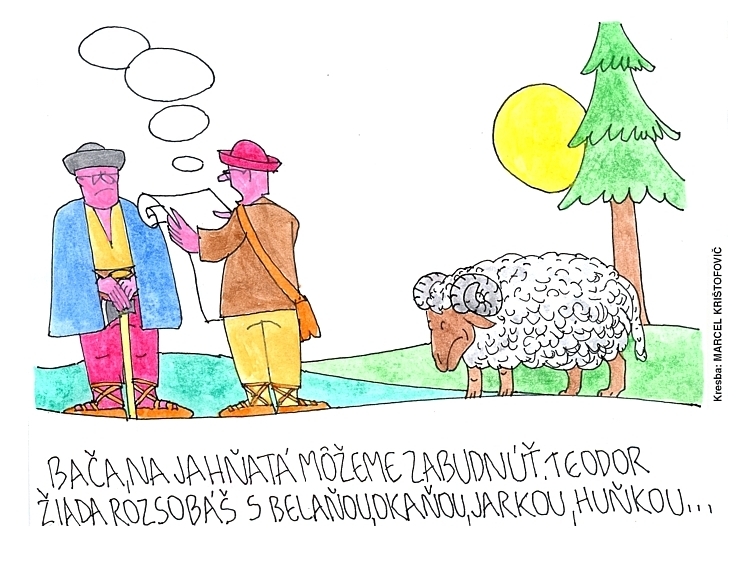 BAČA, NA JAHŇATÁ MÔŽEME ZABUDNÚŤ. TEODOR
ŽIADA ROZSOBÁŠ S BELAŇOU, OKAŇOU, JARKOU, HUŇKOU...
Kresba: MARCEL KRIŠTOFOVIČ